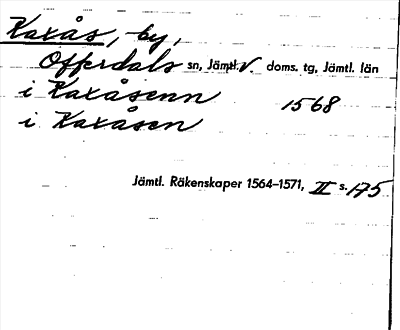 Kaxås, by,
Offerdals sn, Jämtl. v. doms. tg, Jämtl. län
i Kaxåsenn 1568
i Kaxåsen
Jämtl. Räkenskaper 1564–1571, II s. 175